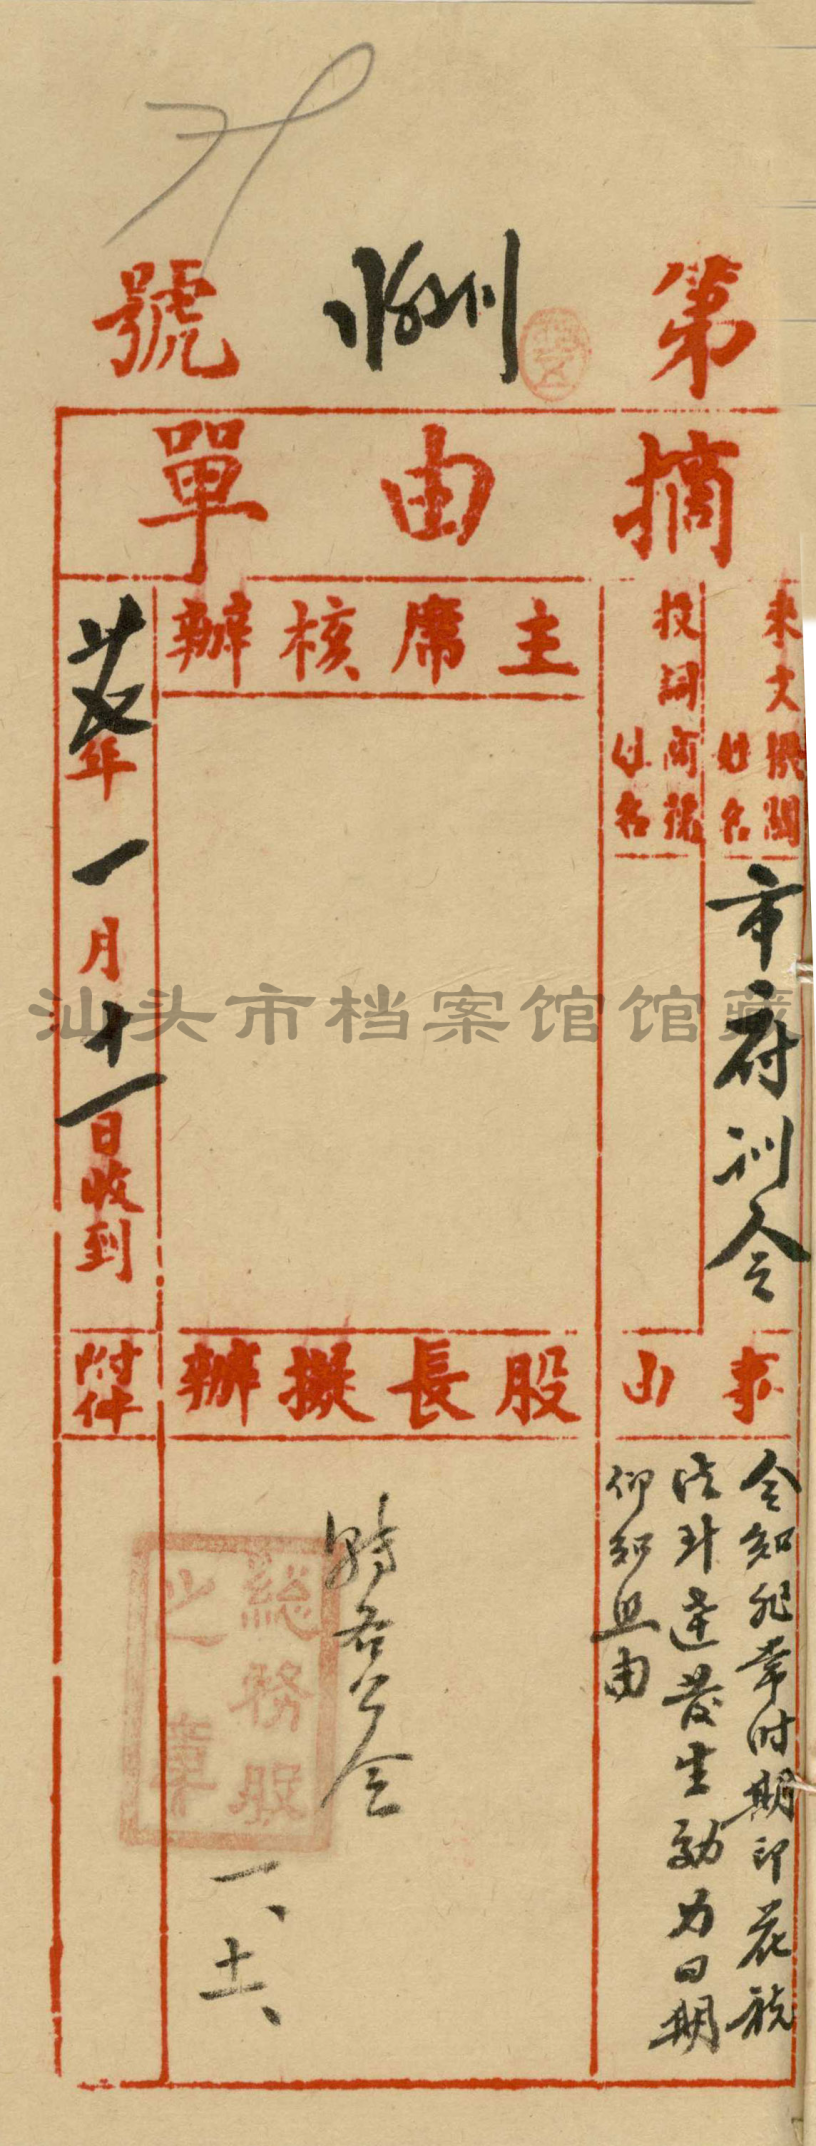 第 號
摘由單
來文機關
姓名
市府训令
投詞商號
姓名
事由
令知非常时期印花税
法 生効日期
仰知照由
主席核辦
股長擬辦
轉各公会
一、十一、
總務股
之章
廿七年一月十一日收到
附件
汕头市档案馆馆藏